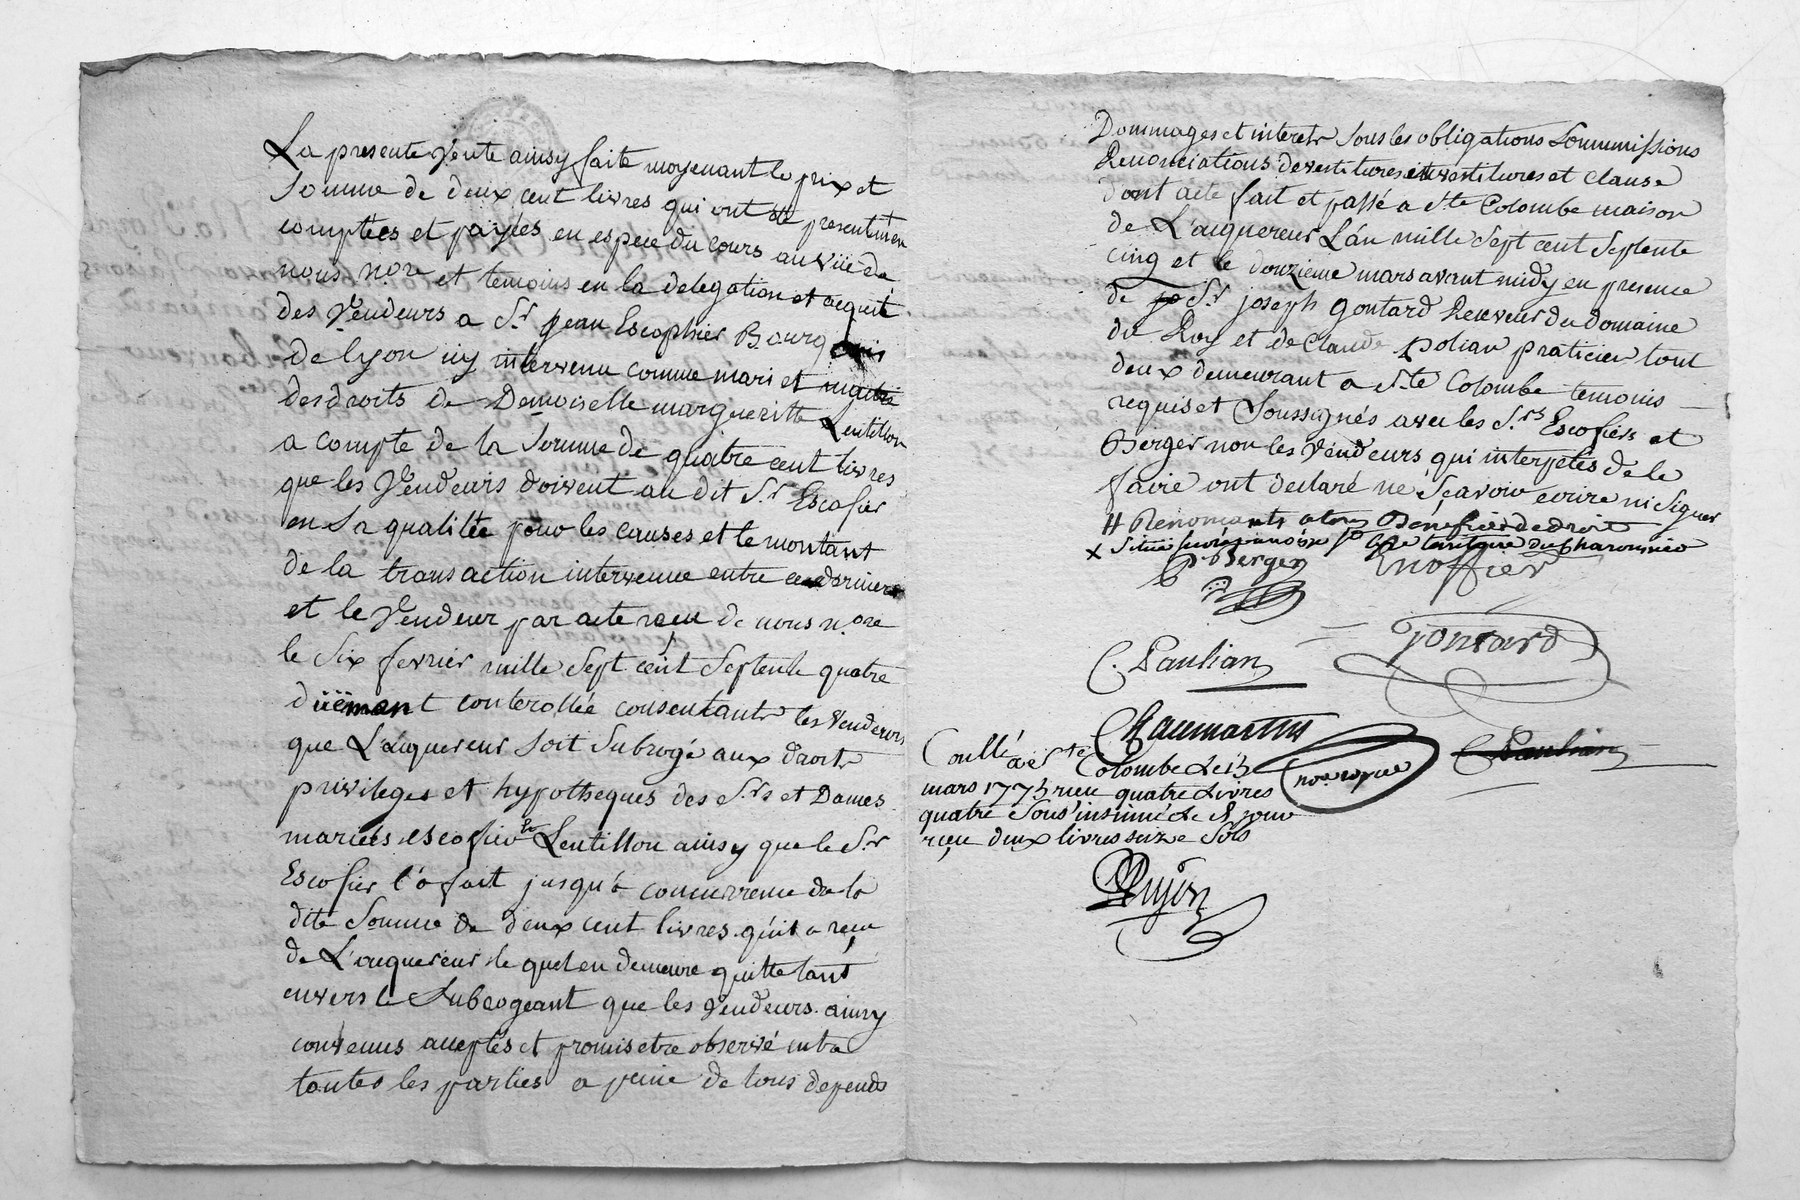 La presente Vente ainsy faite moyenant le prix et
Somme de deux cent livres qui ont été presentem.t en
comptées et payées en espece du cours au vüe de
nous no.re et temoins en la delegation et acquit
des Vendeurs a S.r jean Escophier Bourgeois
de lyon icy intervenu comme mari et maitre
des droits de Demoiselle margueritte Lentillon
a compte de la Somme de quatre cent livres
que les Vendeurs doivent au dit S.r Escofier
en Sa qualittée pour les causes et le montant
de la transaction intervenue entre ce dernier
et le Vendeur par acte reçu de nous n.ore
le Six fevrier mille Sept cent Septente quatre
düement conterollée consentants les Vendeurs
que L'aquereur Soit Subrogé aux droits
privileges et hypotheques des S.rs et Dames
mariées escofier Lentillon ainsy que le S.r
Escofier l'a fait jusqu'a concurrence de la
dite Somme de deux cent livres qu'il a reçu
de L'acquereur le quel en demeure quitte tant
envers le Subrogeant que les Vendeurs ainsy
convenus acceptés et promis etre observé entre
toutes les parties a peine de tous depends
Dommages et interets Sous les obligations Soummissions
Renonciations devestitures investitures et clause
dont acte fait et passé a S.te Colombe maison
de L'acquereur L'an mille Sept cent Septente
cinq et le douzieme mars avant midy en presence
de S.r joseph gontard Receveur du domaine
du Roy et de Claude polian praticien tout
deux demeurant a S.te Colombe temoins
requis et Soussignés avec les S.rs Escofier et
Berger non les Vendeurs qui interpelés de le
faire ont declaré ne Sçavoir ecrire ni Signer
# Renoncants a tous Benefices de droit
x Situé territoire du Charonnico
Berger
C. Paulian Gontard
Chaumartin
C Paulian
no.re royal
Conllé a S.te
Colombe le 13
mars 1775 reçu quatre Livres
quatre Sous insinué le d. jour
reçu deux livres seize Sols
Pujon